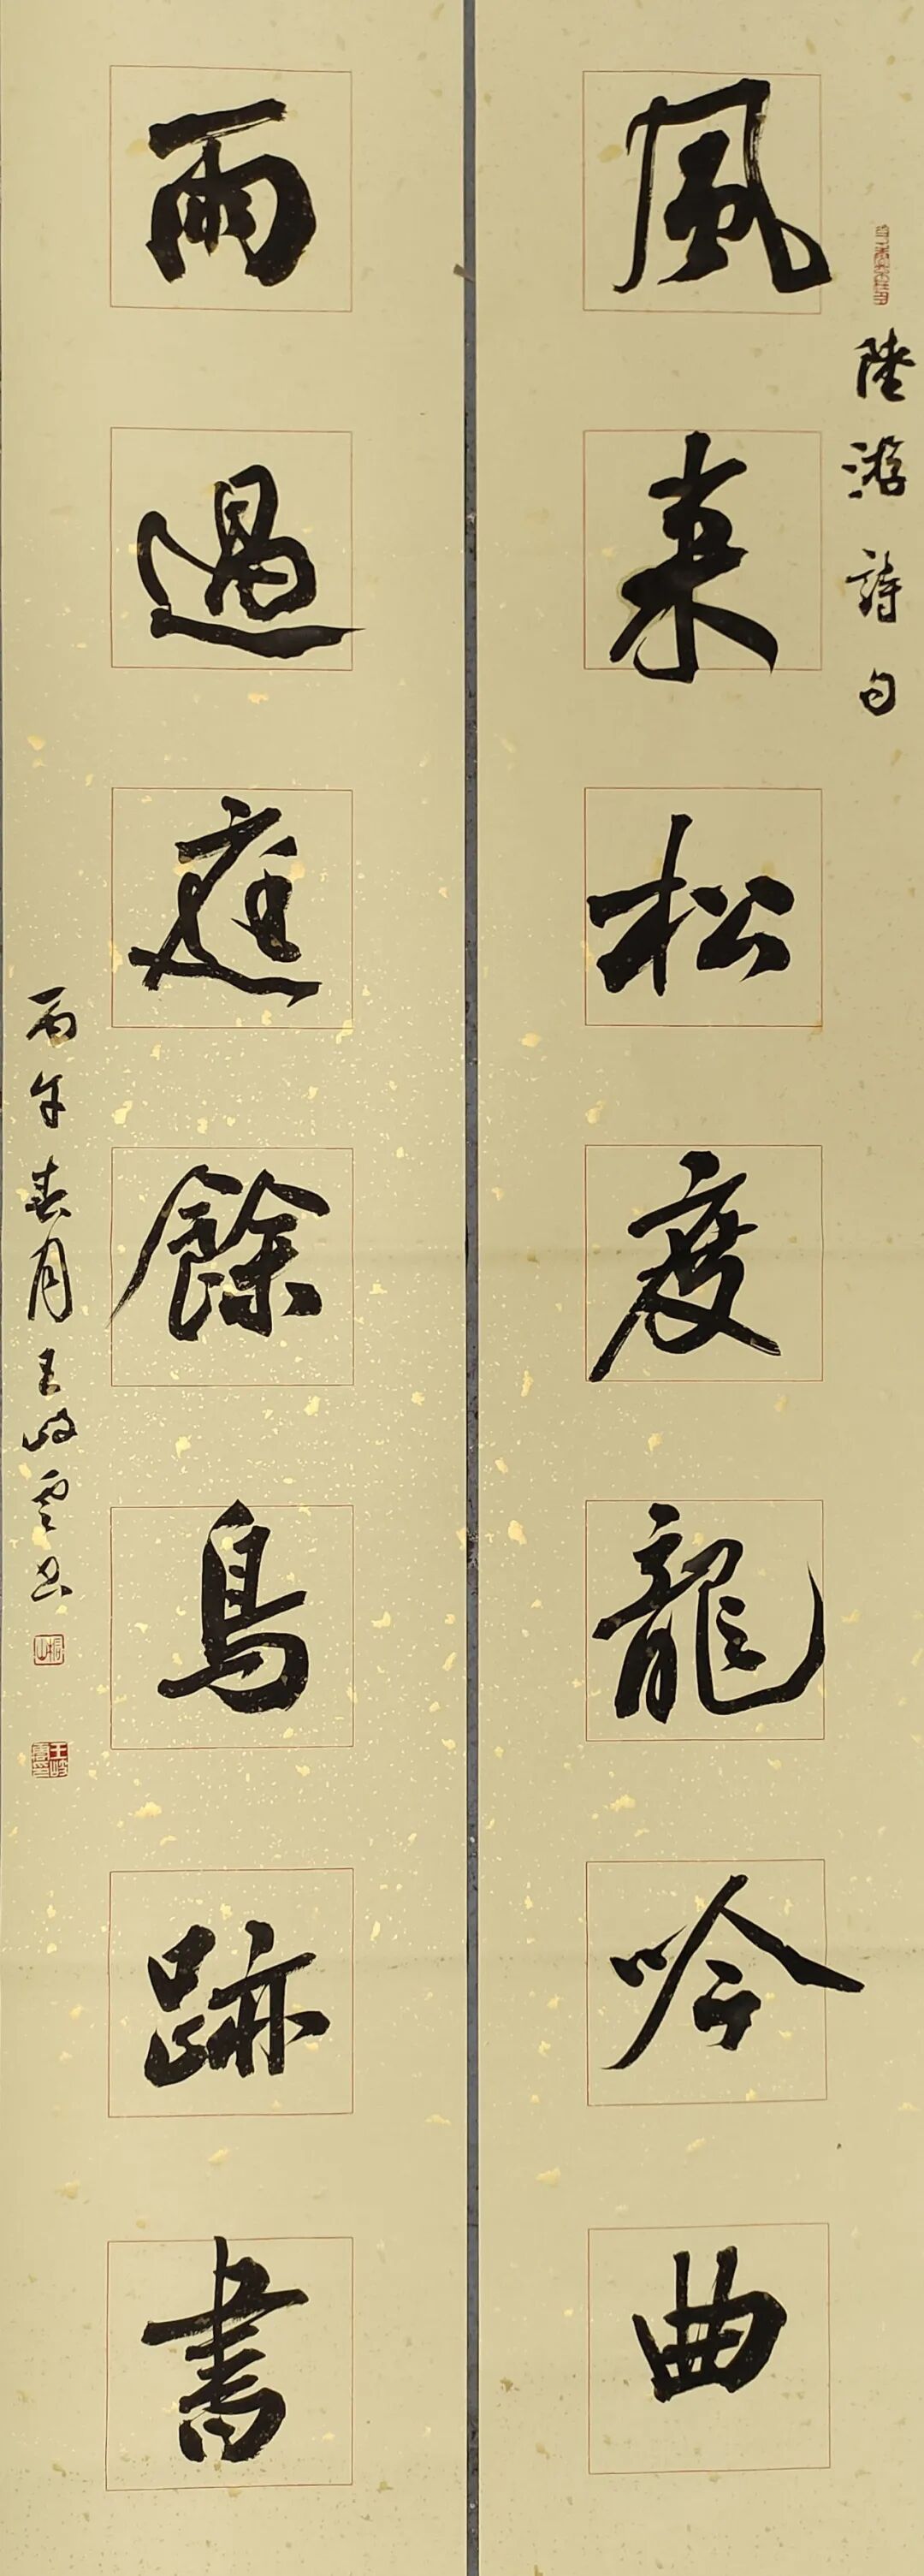 陸游詩句
風來松度龍吟曲
雨過庭餘鳥跡書
丙午春月王岐雲書